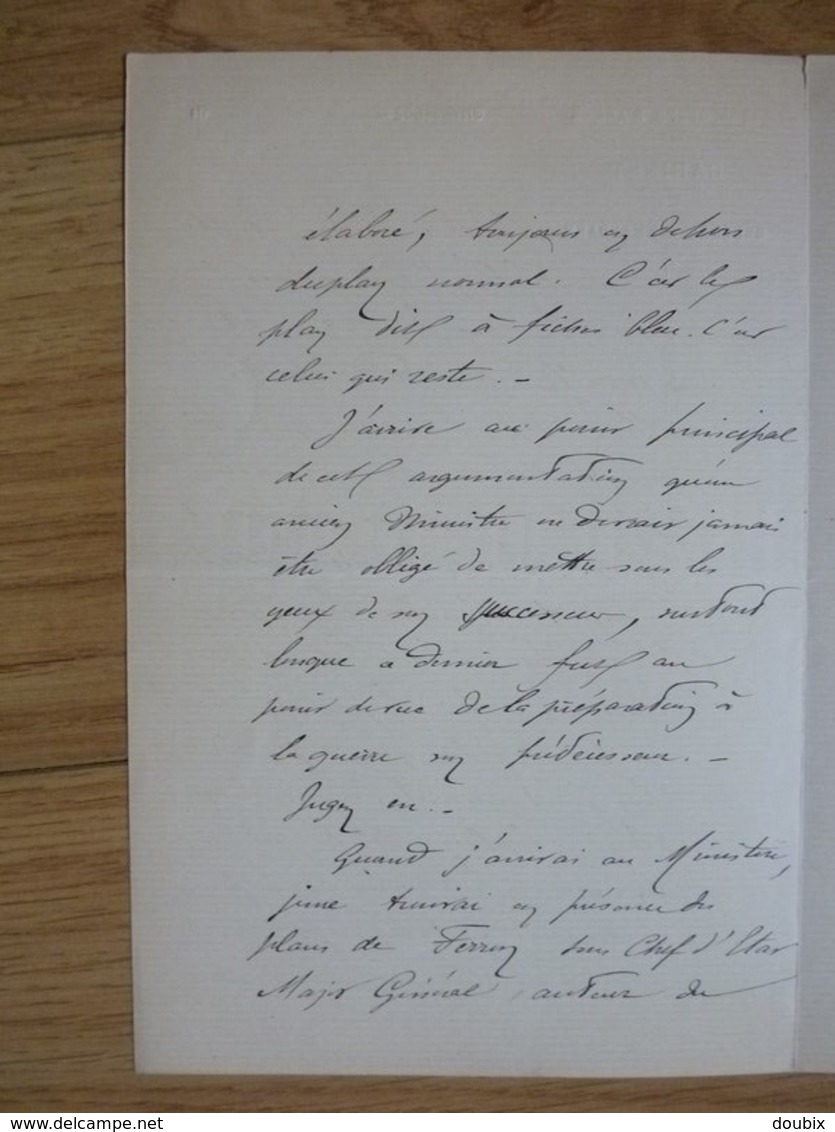 élaboré, toujours en dehors
du plan normal. C'est le
plan dit à fiches bleu. C'est
celui qui reste. –
J'arrive au point principal
de cette argumentation qu'un
ancien Ministre ne devrait jamais
être obligé de mettre sous les
yeux de son successeur, surtout
lorsque ce dernier fut au
point de vue de la préparation à
la guerre son prédécesseur. –
Jugez en. –
Quand j'arrivai au Ministère,
je me trouvai en présence des
plans de Ferron son Chef d'Etat
Major Général, auteur du
delcampe.net
doubix